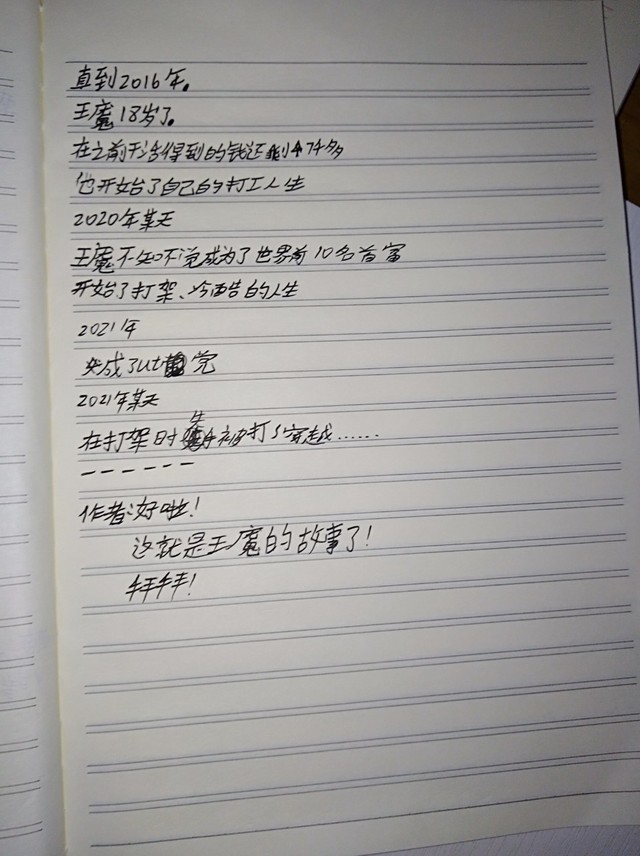 直到2016年。
王魔18岁了。
在之前干活得到的钱还剩47千多
他开始了自己的打工人生
2020年某天
王魔不知不觉成为了世界前10名首富
开始了打架、冷酷的人生
2021年
变成了ut党
2021年某天
在打架时 被打了穿越……
------
作者:好啦!
这就是王魔的故事了!
拜拜!